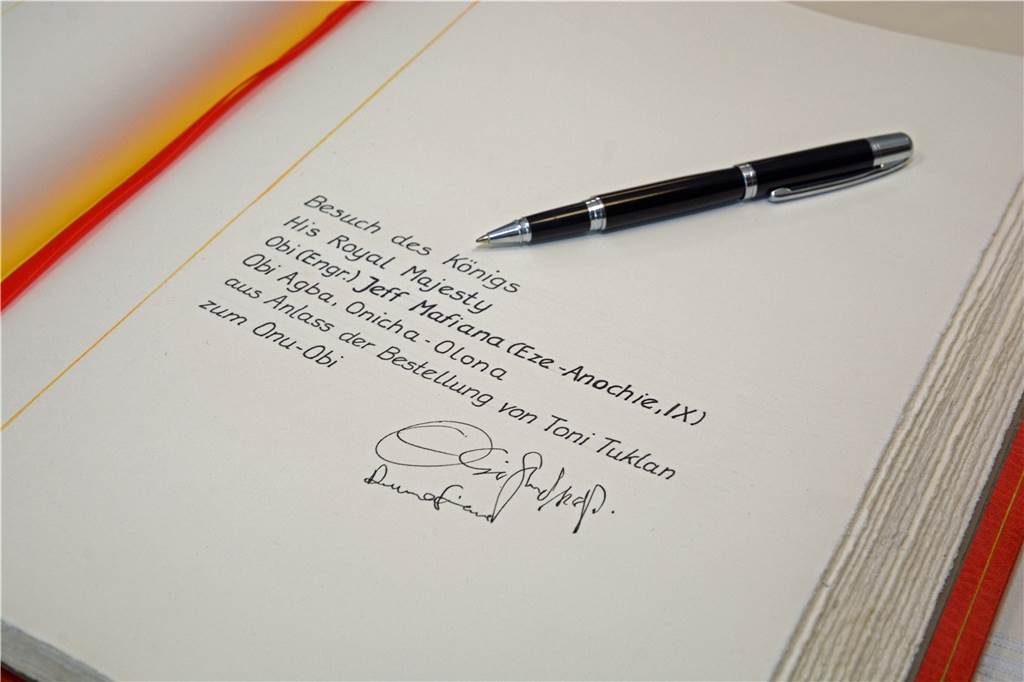 Besuch des Königs
His Royal Majesty
Obi (Engr.) Jeff Mafiana (Eze-Anochie, IX)
Obi Agba, Onicha-Olona
aus Anlass der Bestellung von Toni Tuklan
zum Onu-Obi